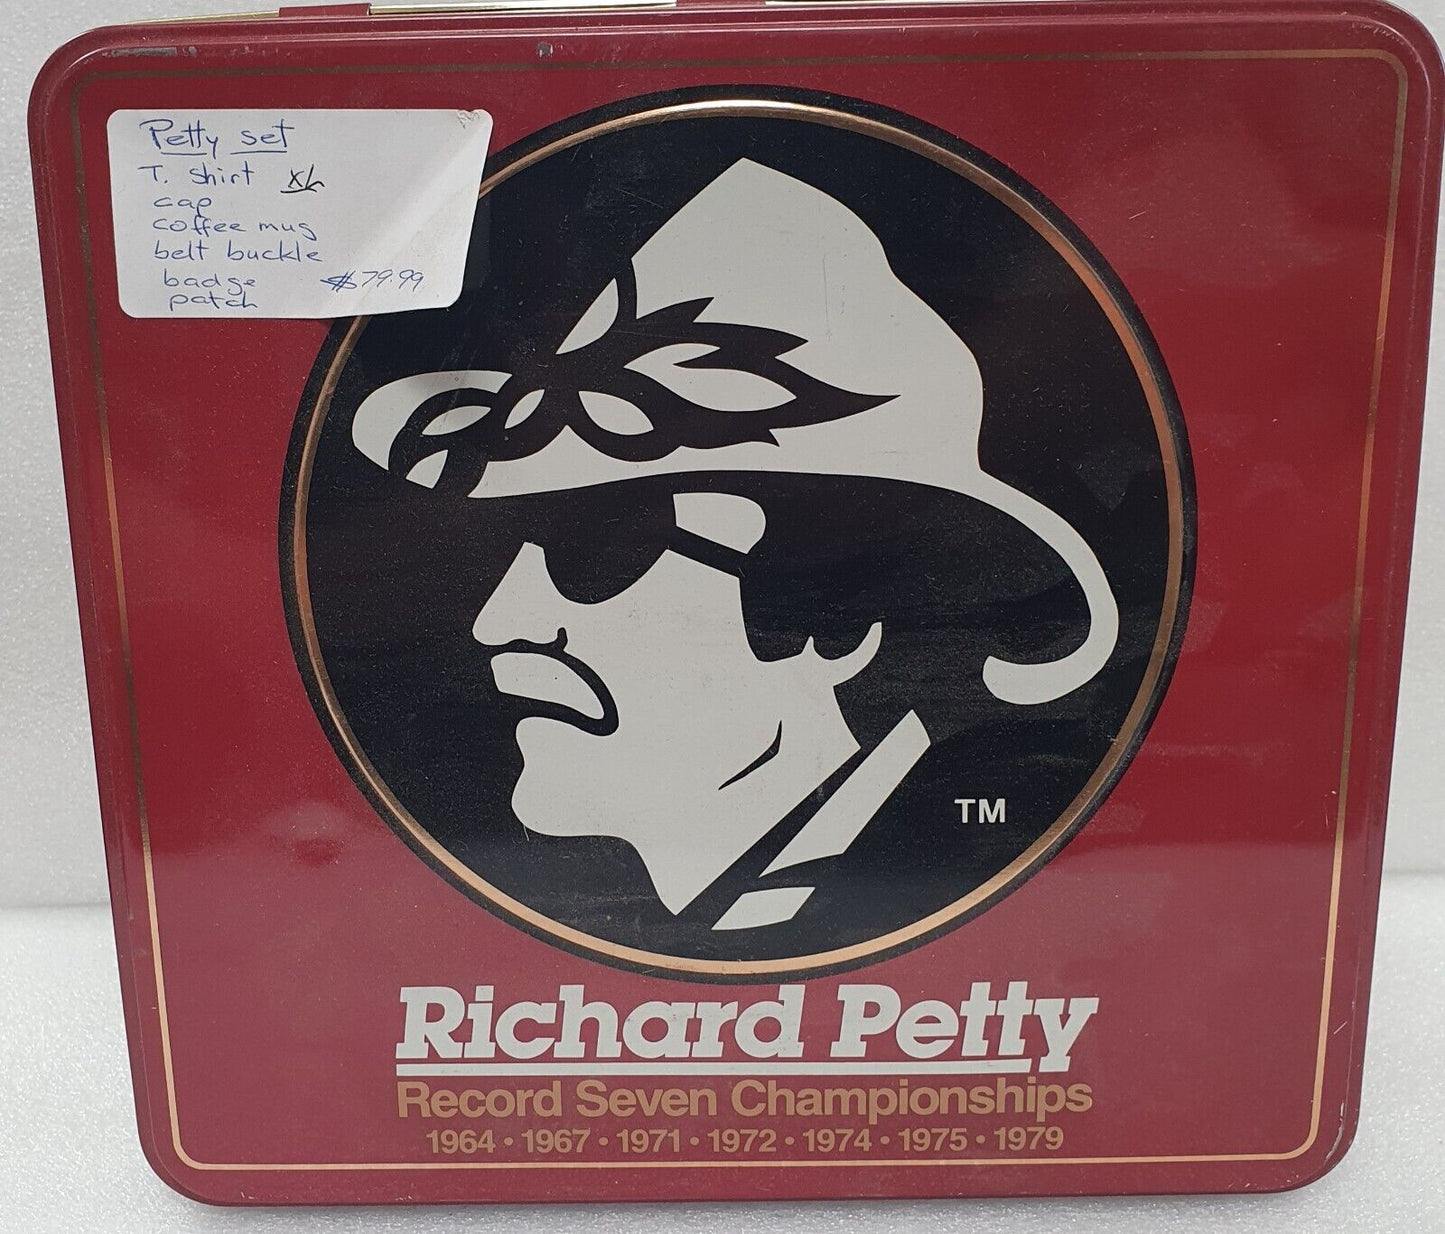 Petty set
T. Shirt XL
cap
coffee mug
belt buckle
badge $79.99
patch
TM
Richard Petty
Record Seven Championships
1964 • 1967 • 1971 • 1972 • 1974 • 1975 • 1979